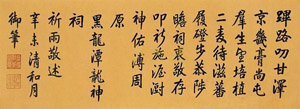 蹕路叨甘澤
京畿尚屯
羣生雲培植
二麥待滋蕃
履磴步恭陟
瞻祠衷敬存
叩祈施澍
神佑溥周
原
黑龍潭龍神
祠
祈雨敬述
辛未清和月
御筆